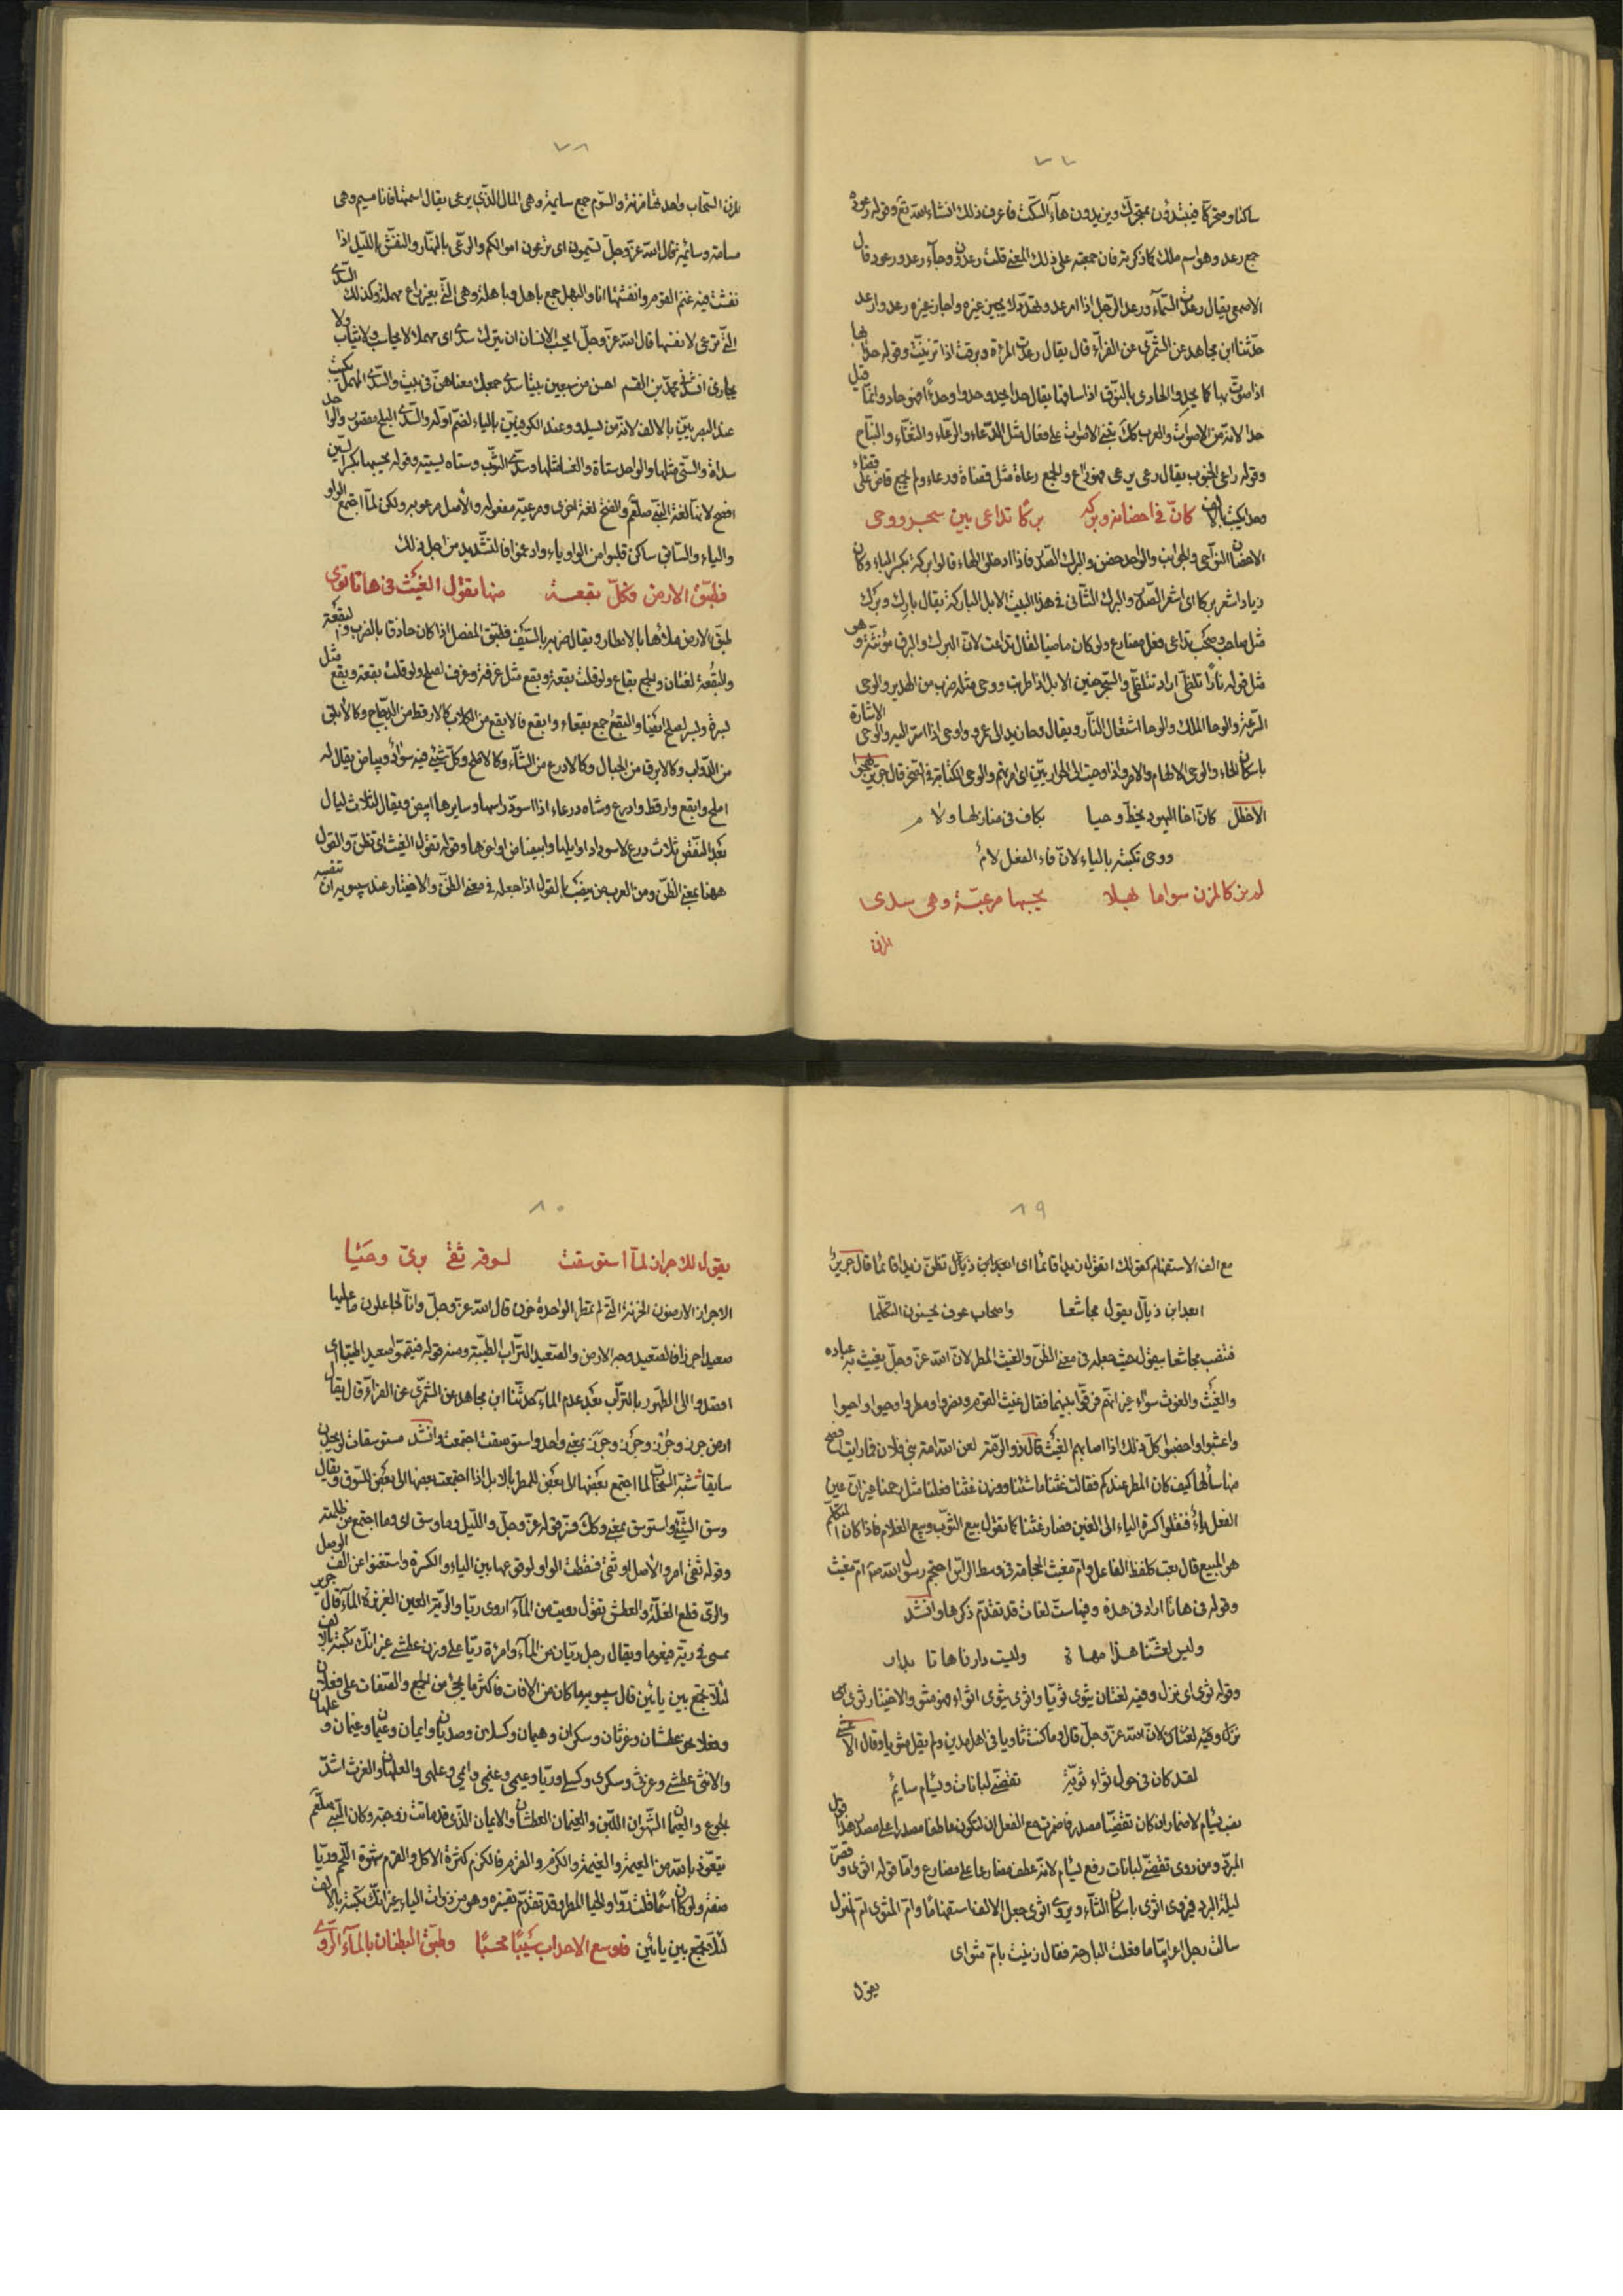 ٧٧
ساكنا ومتحركا فيبتدؤن بمتحرك ويزيدون هاء السكت فاعرف ذلك انشاء الله تع وقوله رعوده
جمع رعد وهو اسم ملك كما ذكر فان جمعته على ذلك المعنى قلت رعدون وجاء رعد ورعود قال
الاصمعي يقال رعدت السماء ورعد الرجل اذا اوعد وتهدد لا يجيز غيره واجاز غيره رعد وارعد
حدثنا ابن مجاهد عن السمري عن الفراء قال يقال رعدت المرءة وبرقت اذا تزينت وقوله حدا بها
اذا صوت بها كما يحدو الحادي بالنوق اذا ساقها يقال حدا يحدو حدوا وحداء فهو حاد وانما قيل
حدا لانه من الاصوات والعرب تبني الاصوات على فعال مثل الدعاء والرغاء والثغاء والبغام
وقوله راعي الجنوب يقال رعى يرعى فهو راع والجمع رعاة مثل قضاة ورعاء ولم يجمع قاض على قضاء
وحدا يكتب بالالف كانّ في احضانه وبركه بركا تداعى بين سجر ووحى
الاحضان النواحي والجوانب والواحد حضن والبرك الصدر فاذا ادخلوا الهاء قالوا بركة بكسر الباء وكان
زياد اشعر بركا اي اشعر الصدر والبرك الثاني في هذا البيت الابل الباركة يقال بارك وبرك
مثل صاحب وصحب تداعى فعل مضارع ولو كان ماضيا لقال تداعت لان البرك والبرق مؤنثة وهو
مثل قوله نارا تلظى اراد تتلظى والسجر حنين الابل اذا طربت ووحى مثله ضرب من الهدير والوحى
السرعة والوحا الملك والوحا اشتعال النار ويقال وحا زيد الى عمرو واوحى اذا اشار اليه والوحى الاشارة
باسكان الحاء والوحى الالهام والامر واذ اوحيت الى الحواريين اي امرتهم والوحى الكتابة في الحجر قال جرير يهجوا
الاخطل كانّ اخا اليهود يخط وحيا بكاف في منازلها ولام
ووحى تكتبه بالياء لان فاء الفعل لام
لم يز كالمزن سواما بهلا يحسبها مرعيّة وهي سدى
المزن
٧٨
المزن السحاب واحدتها مزنة والسوم جمع سايمة وهي المال الذي يرعى يقال اسمتها فانا مسيم وهي
مسامة وسائمة قال الله عز وجل تسيمون اي ترعون اموالكم والرعى بالنهار والنفش بالليل اذا
نفشت فيه غنم القوم وانفشتها انا والبهل جمع باهل وباهلة وهي التي بغير راع مهملة وكذلك السدى
التي ترعى لا نفسها قال الله عز وجل ايحسب الانسان ان يترك سدى اي مهملا لا يحاسب ولا يثاب ولا
يجازى انشدني محمد بن القسم اهن من سبعين بيتا سدى جمعك معناهن في بيت والسدى المهمل يكتب
عند البصريين بالالف لانه من يسدو وعند الكوفيين بالياء لضم اوله والسدى البلح مقصور والواحد
سداة والستى مثلها والواحد ستاة والغسا مثلها وسدى الثوب وستاه يسيته وقوله يحسبها بكسر السين
افصح لانها لغة النبي صلعم والفتح لغة اخرى ومرعية مفعولة والاصل مرعوية ولكن لما اجتمع الواو
والياء والسابق ساكن قلبوا من الواو ياء وادغموا فالتشديد من اجل ذلك
فطبّق الارض فكلّ بقعة منها تقول الغيث في هاتا ثوى
طبق الارض ملأها بالامطار ويقال ضربه بالسيف فطبق المفصل اذا كان حاذقا بالضرب والبقعة
والبقعة لغتان والجمع بقاع ولو قلت بقعة وبقع مثل غرفة وغرف لصلح ولو قلت بقعة وبقع مثل
بسرة وبسر لصلح ايضا والبقع جمع بقعاء وابقع فالابقع من الكلاب كالارقط من الدجاج وكالابلق
من الدواب وكالابرق من الجبال وكالادرع من الشاء وكالاملح وكل شيئ فيه سواد وبياض يقال له
املح وابقع وارقط وادرع وشاه درعاء اذا اسود راسها وسايرها ابيض ويقال لثلاث ليال
بعد البيض ثلاث درع لاسوداد اوايلها وابيضاض اواخرها وقوله تقول الغيث اي تظن والقول
ههنا بمعنى الظن ومن العرب من ينصب بالقول اذا جعله في معنى الظن والاختيار عند سيبويه ان تنصبه
٧٩
مع الف الاستفهام كقولك اتقول زيدا قائما اي ابعد ابن ذيال تظن زيدا قائما قال جرير
ابعد ابن ذيال يقول مجاشعا واصحاب عوف يحسنون التكلما
فنصب مجاشعا بيقول حيث جعله في معنى الظن والغيث المطر لان الله عز وجل يغيث به عباده
والغيث والغوث سواء غير انهم فرقوا بينهما فقال غيث القوم ونصروا ومطروا وحيوا واحيوا
واعشبوا واخصبوا كل ذلك اذا اصابهم الغيث قال ذو الرمة لعن الله امة بني فلان فما رايت افصح
منها سألتها كيف كان المطر عندكم فقالت غثنا ما شئنا ووزن غثنا فعلنا مثل بعنا غير ان عين
الفعل ياء فنقلوا كسرة الياء الى الغين فصار غثنا كما تقول بيع الثوب وبيع الغلام فاذا كان المتكلم
هو المبيع قال بعت كلفظ الفاعل وام مغيث الحجامة في وسط الراس احتجم رسول الله صلعم ام مغيث
وقوله في هاتا اراد في هذه وفيها ست لغات قد تقدم ذكرها وانشد
وليس لعيشنا هذا مهاة وليت دارنا هاتا بدار
وقوله ثوى اي نزل وفيه لغتان يثوى ثويا واثوى يثوى اثواء فهو مثو والاختيار ثوى اي
نزل وفيه لغتان لان الله عز وجل قال وما كنت ثاويا في اهل مدين ولم يقل مثويا وقال الاعشى
لقد كان في حول ثواء ثويته تقضى لبانات ويسام سايم
نصب يسام لاضمار ان كان تقضيا مصدر فاضمرت مع الفعل ان لتكون عاطفا مصدرا على مصدر هذا قول
المبرد ومن روى تقضى لبانات رفع يسام لانه عطف مضارعا على مضارع واما قوله اثوى وقصر
ليلة البرد فيروى اثوى باسكان الثاء ويروى اثوى جعل الالف استفهاما وام المثوى ام المنزل
سالت رجل اعرابيا ما فعلت البارحة فقال زنيت بام مثواي
يقول
٨٠
يقول للاجراز لما استوسقت لسوقه ثقى بريّ وحيا
الاجراز الارضون الخربة التي لم تمطر الواحدة جرز قال الله عز وجل وانا لجاعلون ما عليها
صعيدا جرزا فالصعيد وجه الارض والصعيد التراب الطيبة ومنه قوله فتيمموا صعيدا طيبا اي
اقصدوا الى الطهور بالتراب بعد عدم الماء حدثنا ابن مجاهد عن السمري عن الفراء قال يقال
ارض جرز وجرز وجرز وجرز بمعنى واحد واستوسقت اجتمعت وانشد مستوسقات لو يجدن
سايقا شبه السحاب لما اجتمع بعضها الى بعض للمطر بالابل اذا اجتمعت بعضها الى بعض للسوق ويقال
وسق الشيئ واستوسق بمعنى وكذلك فسر قوله عز وجل والليل وما وسق اي وما اجتمع من ظلمته
وقوله ثقى امر والاصل اوثقى فسقطت الواو لوقوعها بين الياء والكسرة واستغنوا عن الف الوصل
والرى قطع الغلة والعطش تقول رويت من الماء اروى ريا والرية العين الغزيرة الماء قال جرير
يمسي في رية فيعوما ويقال رجل ريان من الماء وامرءة ريا على وزن عطشى غير انك تكتبه بالالف
لئلا تجمع بين يائين قال سيبويه ما كان من الافات فاكثر ما يجئ من الجمع والصفات على فعلان
وفعلا نحو عطشان وغرثان وسكران وهيمان وكسلان وصديان وايمان وعيمان وغيمان و علهان
والانثى عطشى وغرثى وسكرى وكسلى وريا وعيمى وغيمى وايمى وعلهى والعلهان والغرث اشد
الجوع والعيمان الشهوان اللبن والغيمان العطشان والايمان الذي قد ماتت زوجته وكان النبي صلعم
يتعوذ بالله من العيمة والغيمة والكزم والقرم فالكزم كثرة الاكل والقرم شهوة اللحم وريا
صفة ولو كان اسما قلت روا والحيا المطر وقد تقدم تفسيره وهو من ذوات الياء غير انك تكتبه بالالف
لئلا تجمع بين يائين فاوسع الاحداب سيبا محسبا وطبّق البطنان بالماء الروى